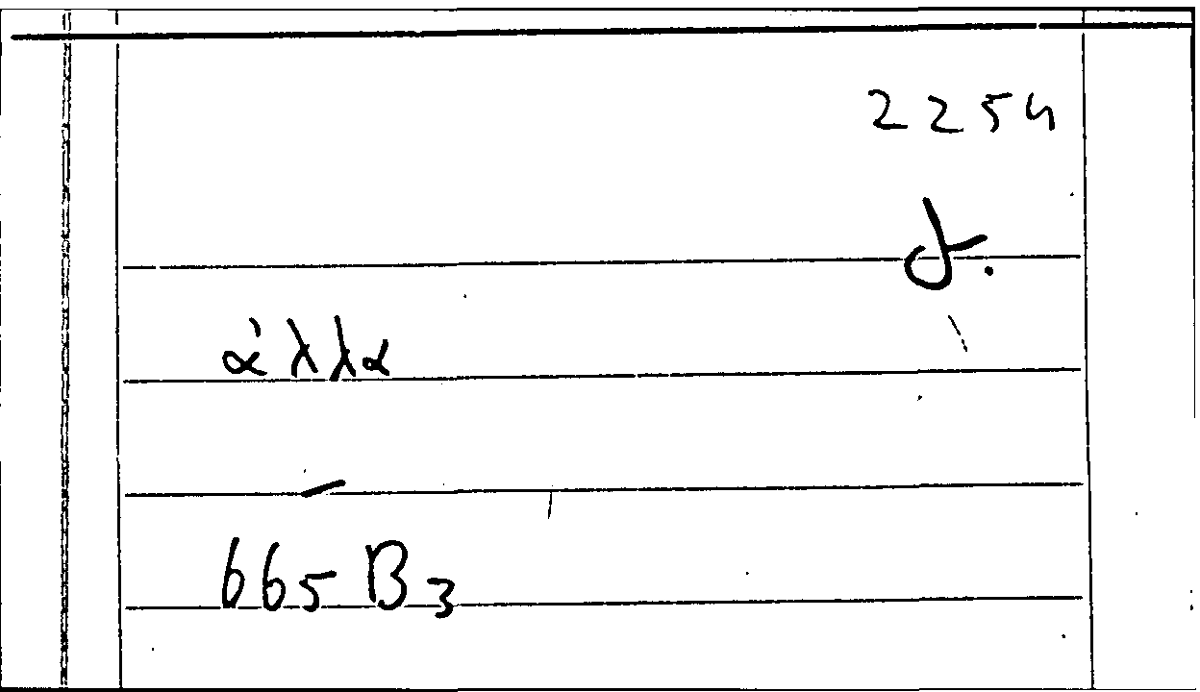 2254
ἀλλα
—
665 B3